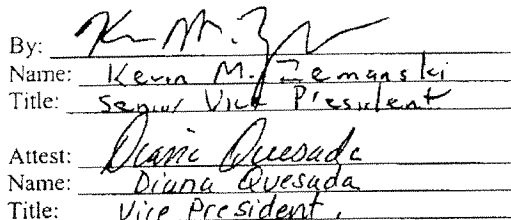 By: K M. Z
Name: Kevin M. Zemanski
Title: Senior Vice President
Attest: Diana Quesada
Name: Diana Quesada
Title: Vice President,